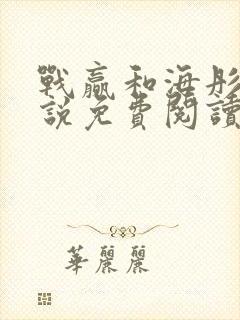 戰贏和海彤
說免費閱讀
華麗麗